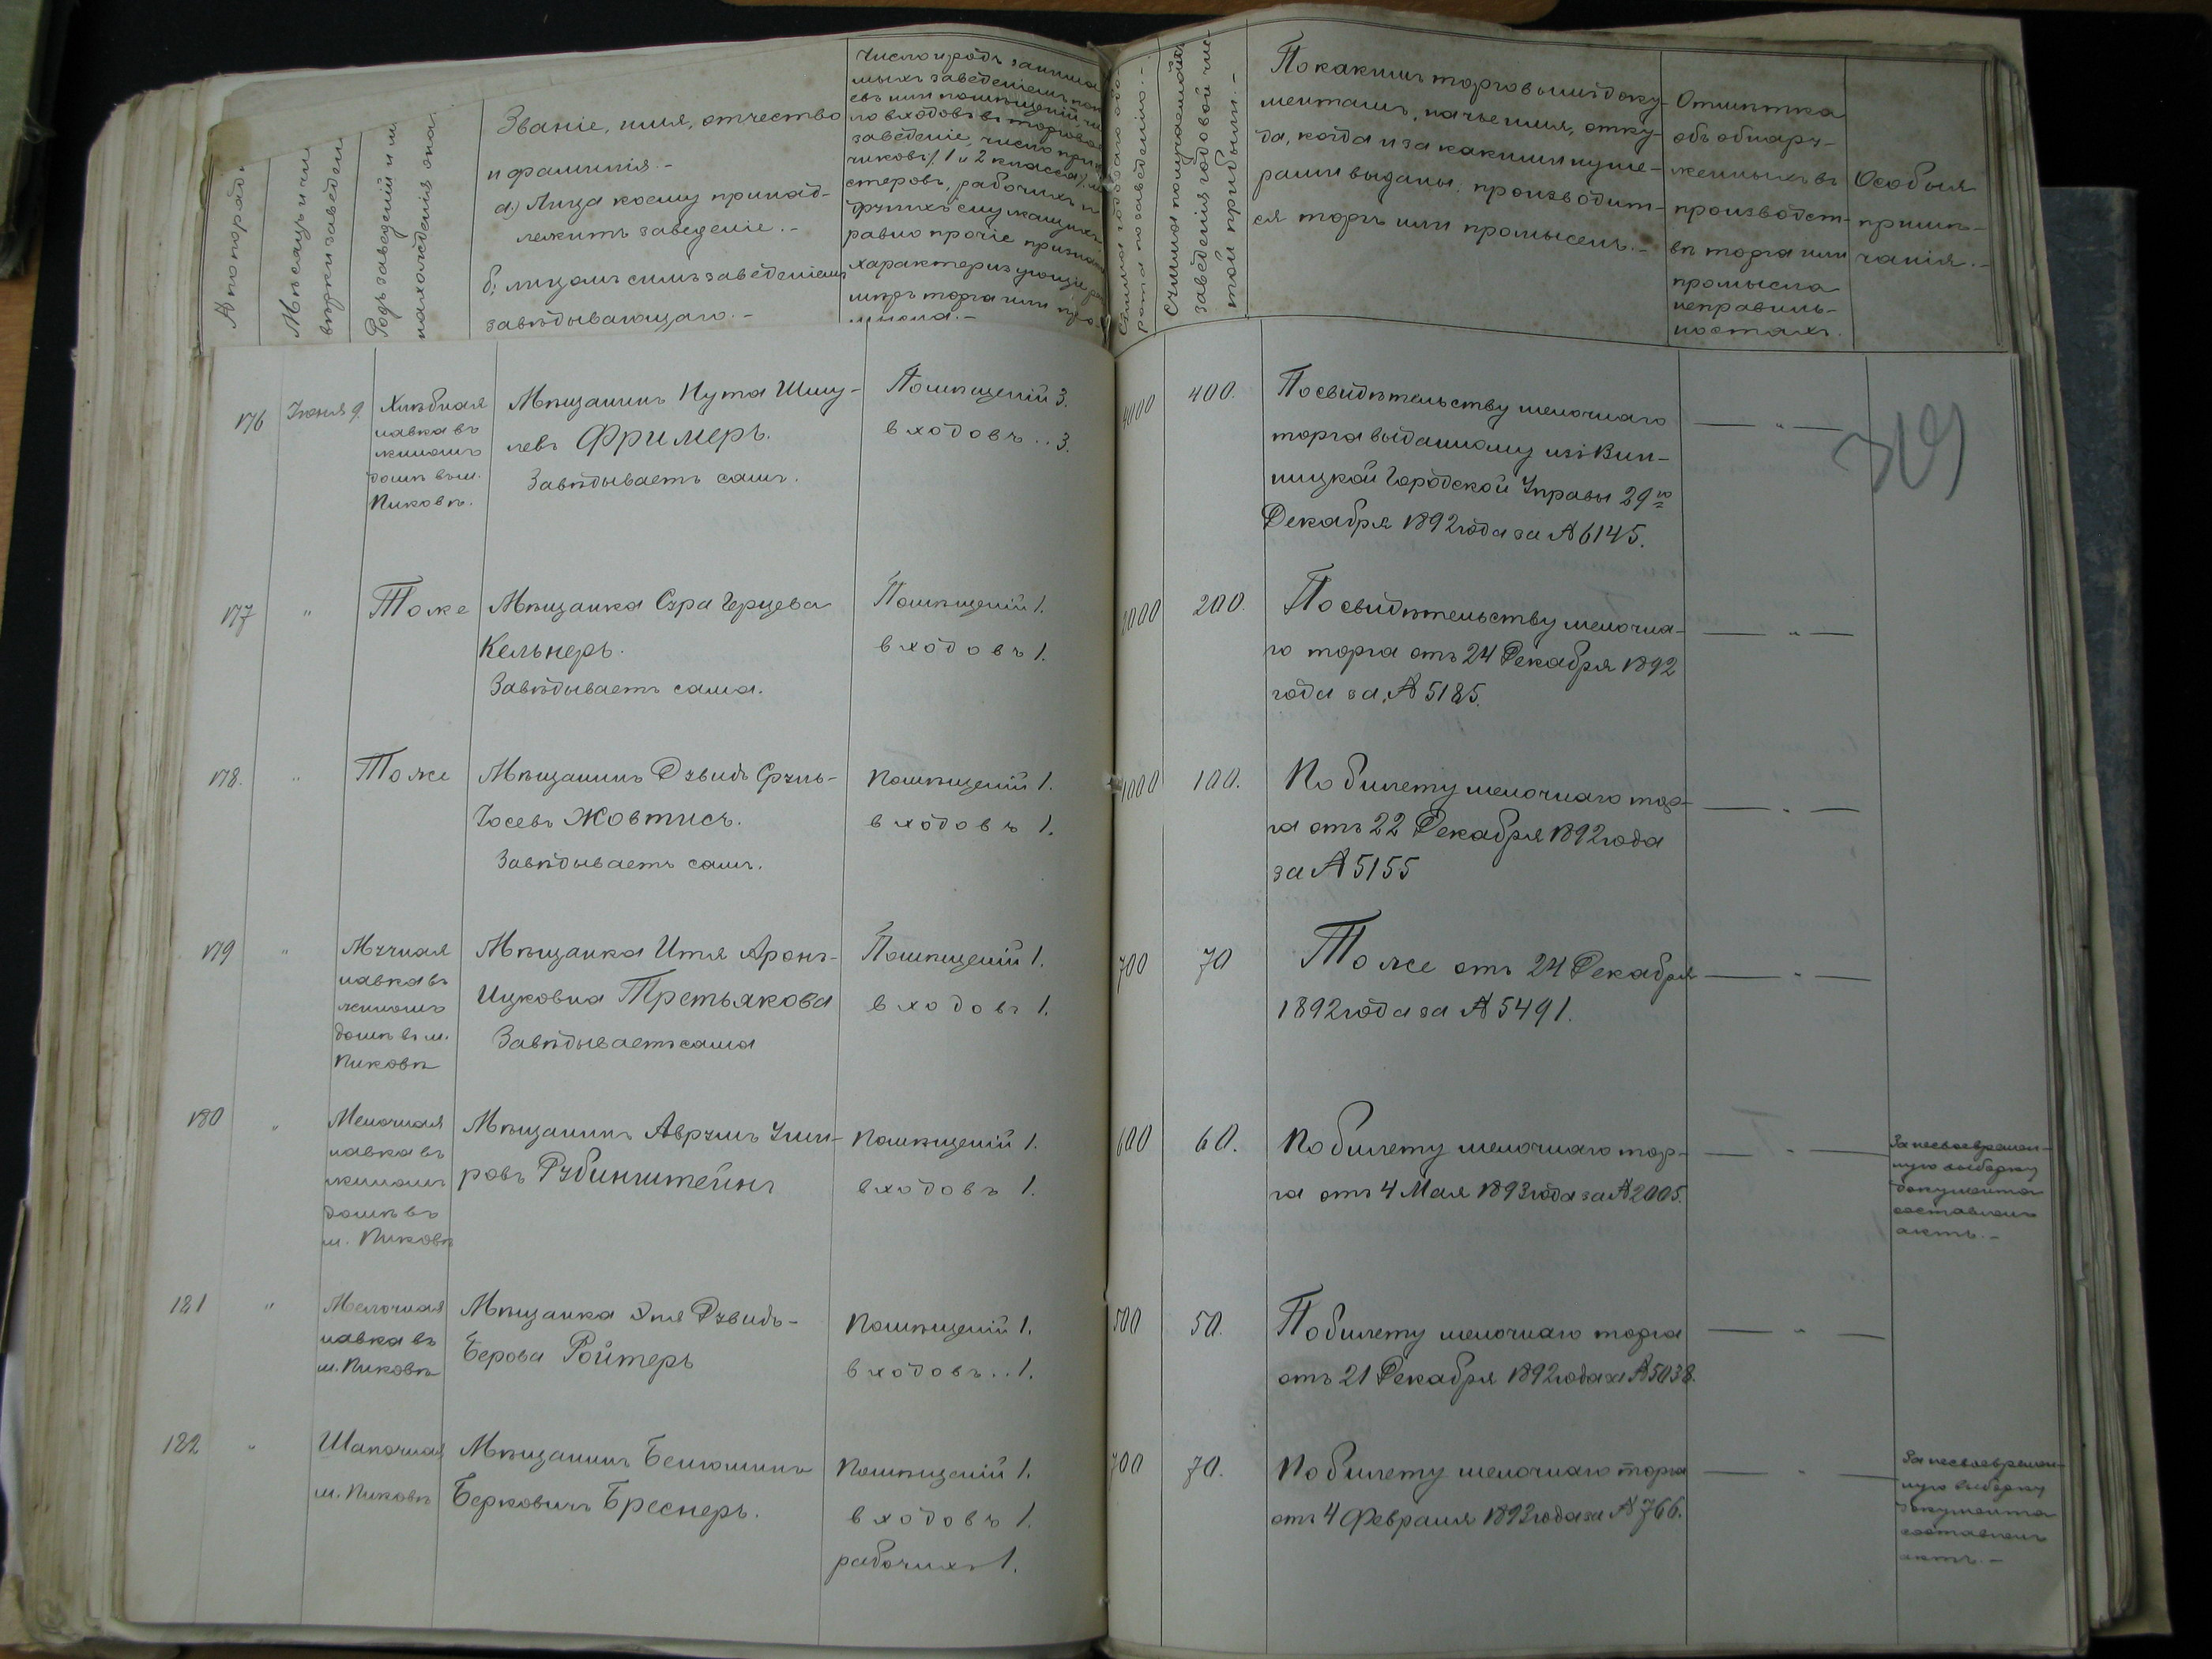 № по порядк
Мѣсяцъ и чи
вѣрки заведен
Родъ заведенія и м
нахожденія она.
Званіе, имя, отчество
и фамилія.-
а) Лица коему принад-
лежитъ заведеніе.-
б, лицомъ симъ заведеніемъ
завѣдывающаго.-
Число и родъ занима
мыхъ заведеніемъ
евъ или помѣщеній чи
ло входовъ въ торговое
заведеніе, число при
чиковъ (1 и 2 класса), ма
стеровъ, рабочихъ и
другихъ служащихъ
равно прочіе признаки
характеризующіе раз
мѣръ торга или про-
мысла.-
Сумма годоваго обо-
рота по заведенію.-
Сумма получаемой
заведенія годовой чис-
той прибыли.-
По какимъ торговымъ доку-
ментамъ, на чье имя, отку-
да, когда и за какими нуме-
рами выданы, производит-
ся торгъ или промыселъ.-
Отмѣтка
объ обнару-
женныхъ въ
производст-
вѣ торга или
промысла
неправиль-
ностяхъ.
Особыя
примѣ-
чанія.-
319
176
Іюня 9
Хлѣбная
лавка въ
жиломъ
домѣ въ м.
Пиковѣ.
Мѣщанинъ Нута Шму-
левъ Фримеръ.
Завѣдываетъ самъ.
Помѣщеній 3.
входовъ .. 3.
4000
400.
По свидѣтельству мелочнаго
торга выданному изъ Вин-
ницкой Городской Управы 29го
Декабря 1892 года за № 6145.
— „ —
177
„
Тоже
Мѣщанка Сура Герцева
Кельнеръ.
Завѣдываетъ сама.
Помѣщеній 1.
входовъ 1.
2000
200.
По свидѣтельству мелочна-
го торга отъ 24 Декабря 1892
года за № 5185.
— „ —
178.
„
Тоже
Мѣщанинъ Дувидъ Сруль-
Іосевъ Жовтисъ.
Завѣдываетъ самъ.
Помѣщеній 1.
входовъ 1.
1000
100.
По билету мелочнаго тор-
га отъ 22 Декабря 1892 года
за № 5155
— „ —
179
„
Мучная
лавка въ
жиломъ
домѣ въ м.
Пиковѣ
Мѣщанка Итя Аронъ-
Ицковна Третьякова
Завѣдываетъ сама
Помѣщеній 1.
входовъ 1.
700
70
Тоже отъ 24 Декабря
1892 года за № 5491.
— „ —
180
„
Мелочная
лавка въ
жиломъ
домѣ въ
м. Пиковѣ
Мѣщанинъ Аврумъ Уши-
ровъ Рубинштейнъ
Помѣщеній 1.
входовъ 1.
600
60.
По билету мелочнаго тор-
га отъ 4 Мая 1893 года за № 2005.
— „ —
За несвоевремен-
ную выборку
документа
составленъ
актъ.-
181
„
Мелочная
лавка въ
м. Пиковѣ
Мѣщанка Эня Дувидъ-
Берова Ройтеръ
Помѣщеній 1.
входовъ .. 1.
500
50.
По билету мелочнаго торга
отъ 21 Декабря 1892 года за № 5038.
— „ —
182
„
Шапочная
м. Пиковѣ
Мѣщанинъ Беньюминъ
Берковичъ Бреснеръ.
Помѣщеній 1.
входовъ 1.
рабочихъ 1.
700
70.
По билету мелочнаго торга
отъ 4 Февраля 1893 года за № 766.
— „ —
За несвоевремен-
ную выборку
документа
составленъ
актъ.-